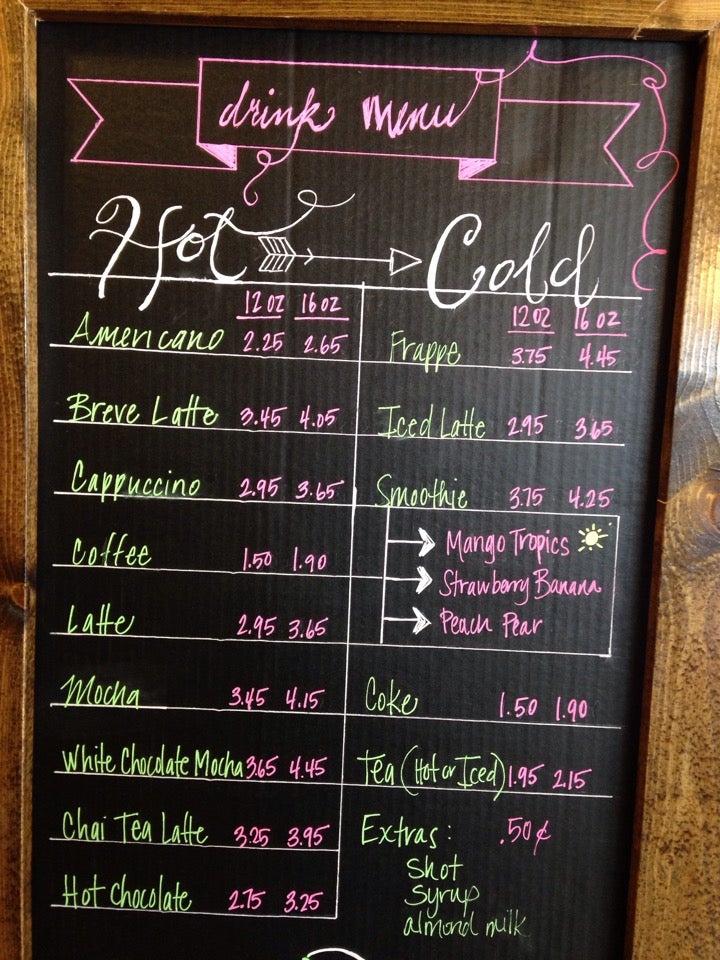 drink menu
Hot
12 oz 16 oz
Americano 2.25 2.65
Breve Latte 3.45 4.05
Cappuccino 2.95 3.65
Coffee 1.50 1.90
Latte 2.95 3.65
Mocha 3.45 4.15
White Chocolate Mocha 3.65 4.45
Chai Tea Latte 3.25 3.95
Hot Chocolate 2.75 3.25
Cold
12 oz 16 oz
Frappe 3.75 4.45
Iced Latte 2.95 3.65
Smoothie 3.75 4.25
Mango Tropics
Strawberry Banana
Peach Pear
Coke 1.50 1.90
Tea (Hot or Iced) 1.95 2.15
Extras: .50¢
Shot
Syrup
almond milk